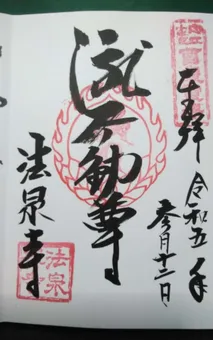 奉拝 令和五年
参月十二日
滝不動尊
法泉寺